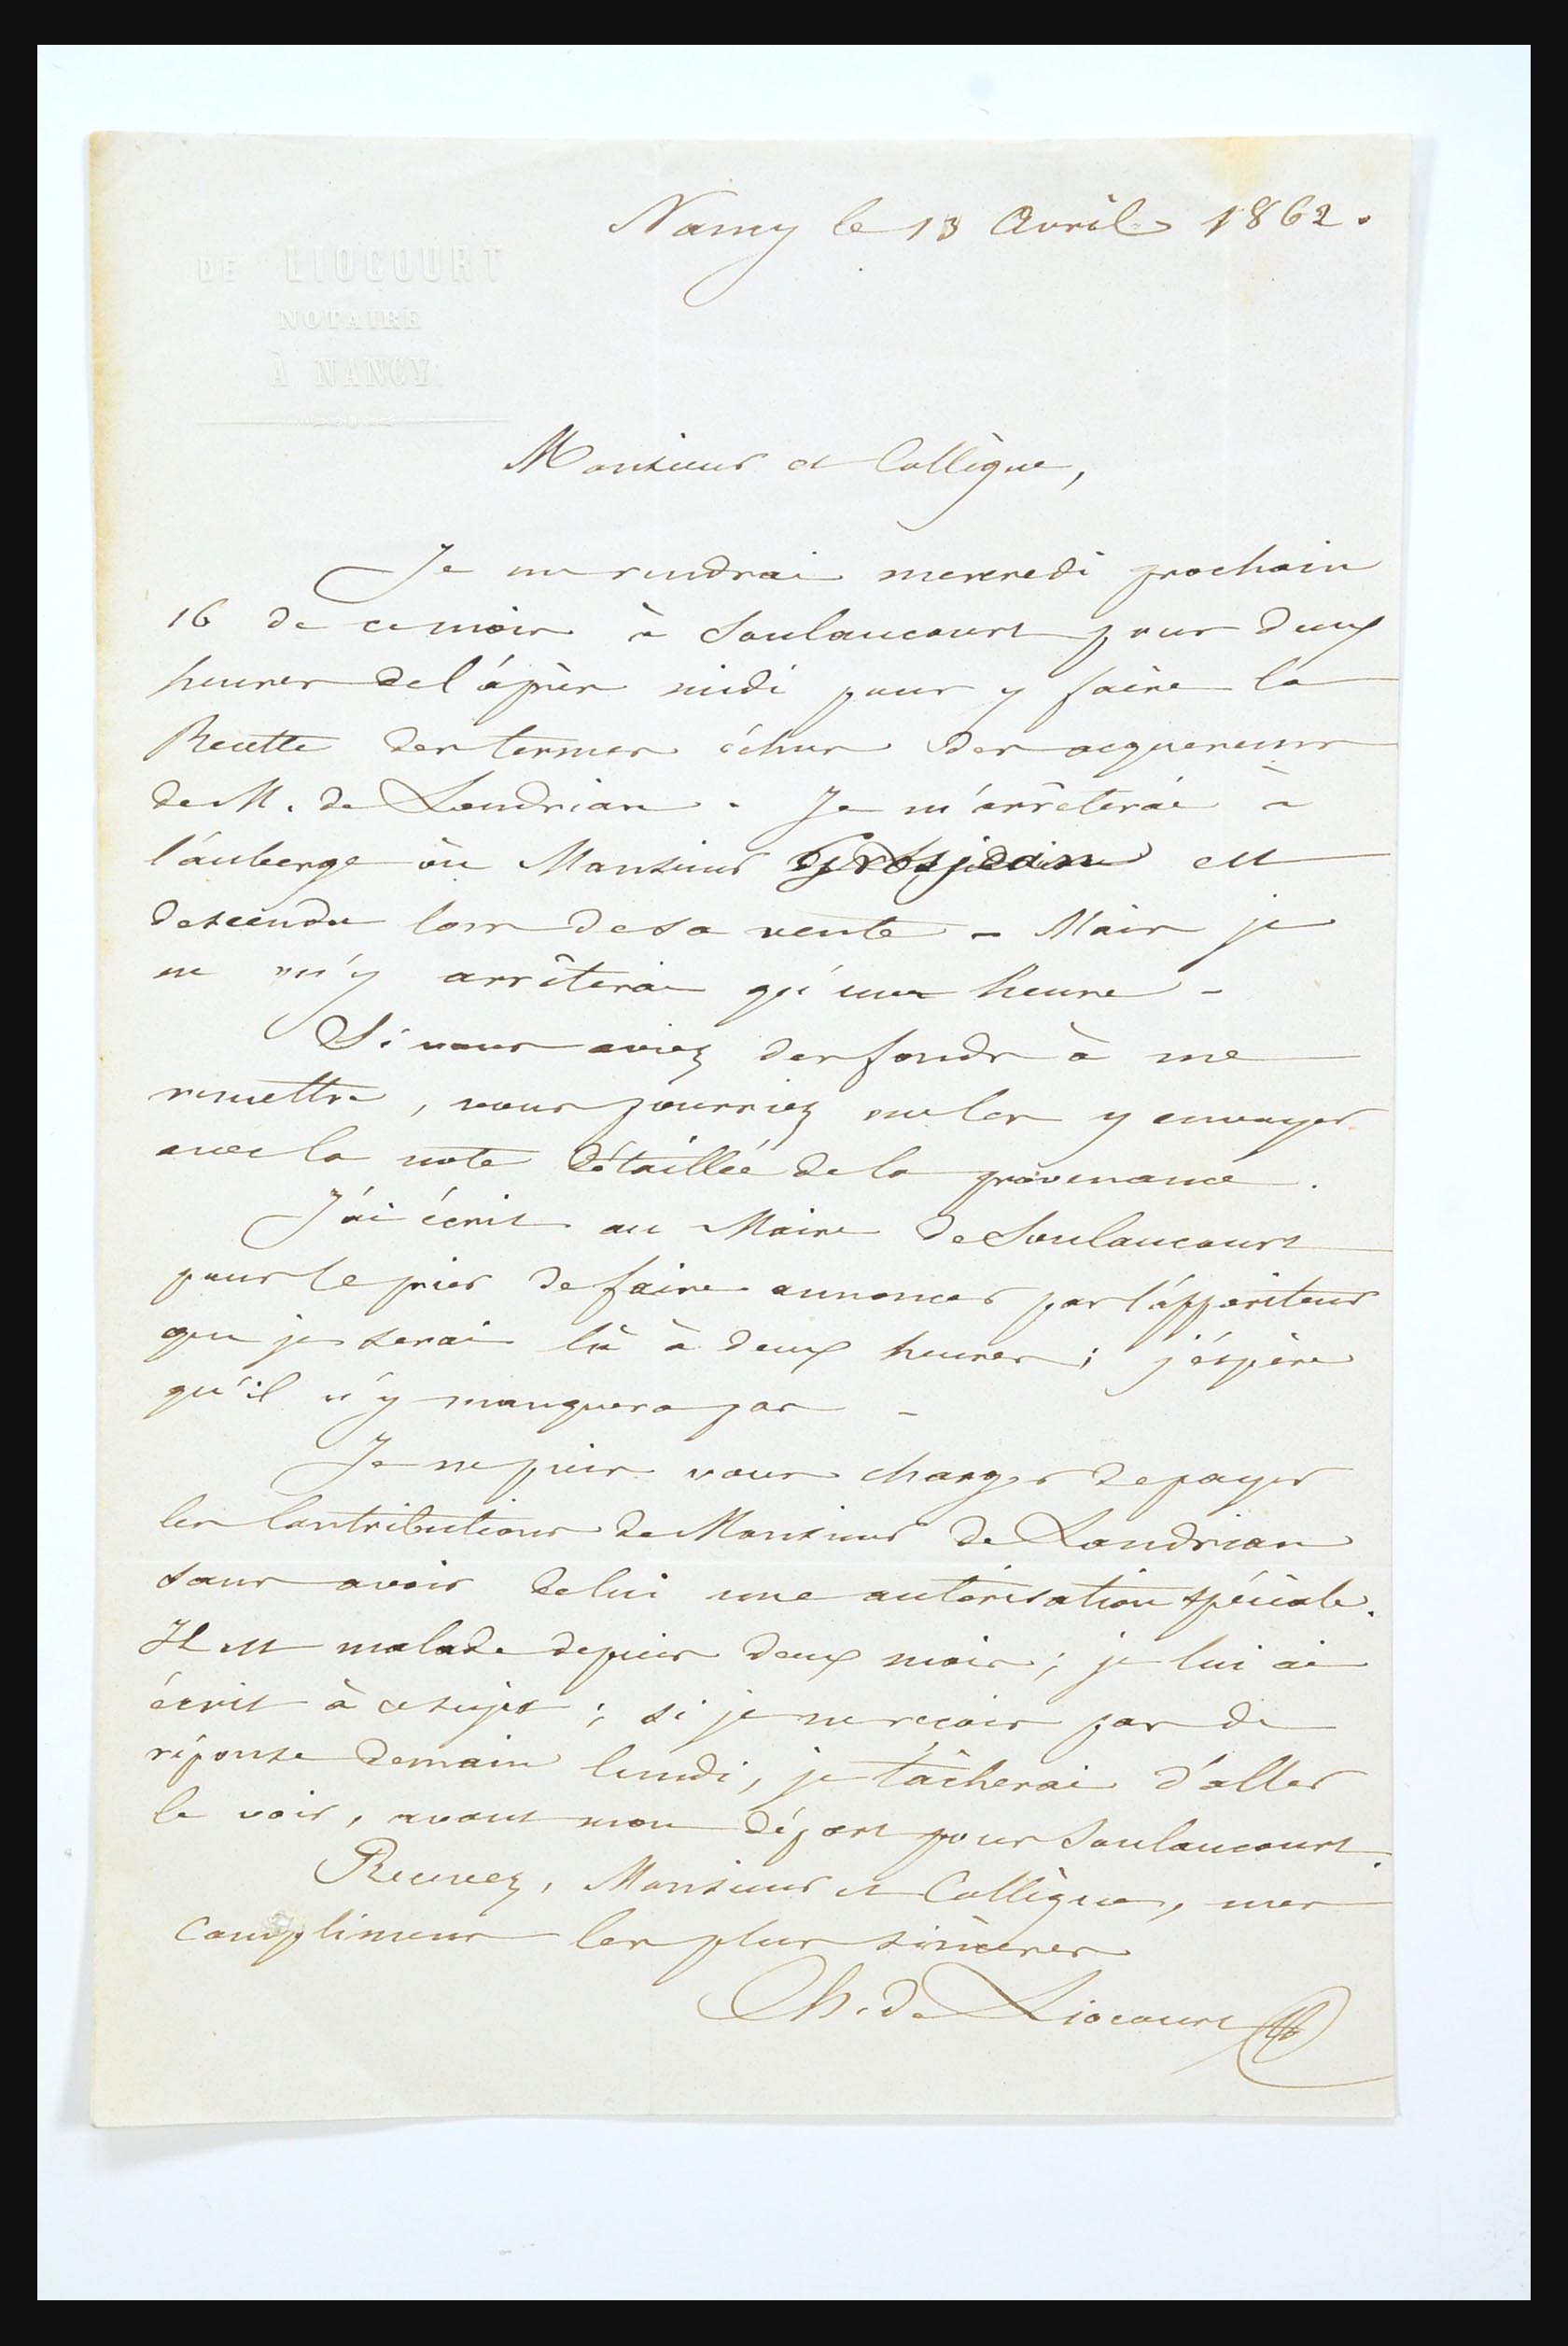 Nancy le 13 Avril 1862.
DE LIOCOURT
NOTAIRE
À NANCY.
Monsieur et Collègue,
Je me rendrai mercredi prochain
16 de ce mois à Soulaucourt pour deux
heures de l'après midi pour y faire la
Recette des termes échus des acquereurs
de M. de Landrian. Je m'arrêterai à
l'auberge où Monsieur Grosjean est
descendu lors de sa vente - Mais je
ne m'y arrêterai qu'une heure -
Si vous aviez des fonds à me
remettre, vous pourriez me les y envoyer
avec la note détaillée de la provenance.
J'ai écrit au Maire de Soulaucourt
pour le prier de faire annoncer par l'appariteur
que je serai là à deux heures; j'espère
qu'il n'y manquera pas -
Je ne puis vous charger de payer
les Contributions de Monsieur de Landrian
sans avoir de lui une autorisation spéciale.
Il est malade depuis deux mois; je lui ai
écrit à ce sujet; si je ne reçois pas de
réponse demain lundi, je tâcherai d'aller
le voir, avant mon départ pour Soulaucourt.
Recevez, Monsieur et Collègue, mes
complimens les plus sincères
Ch. de Liocourt